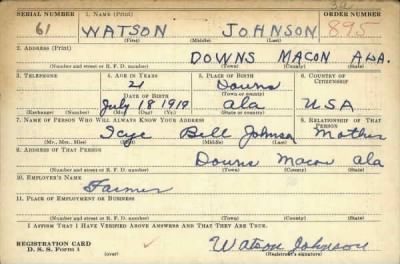 SERIAL NUMBER 1. NAME (Print) ORDER NUMBER
61 WATSON JOHNSON 895
(First) (Middle) (Last)
2. ADDRESS (Print)
DOWNS MACON ALA.
(Number and street or R. F. D. number) (Town) (County) (State)
3. TELEPHONE 4. AGE IN YEARS 5. PLACE OF BIRTH 6. COUNTRY OF CITIZENSHIP
21 Downs
DATE OF BIRTH (Town or county)
July 18 1919 ala USA
(Exchange) (Number) (Mo.) (Day) (Yr.) (State or country)
7. NAME OF PERSON WHO WILL ALWAYS KNOW YOUR ADDRESS 8. RELATIONSHIP OF THAT PERSON
Bell Johnson Mother
(Mr., Mrs., Miss) (First) (Middle) (Last)
9. ADDRESS OF THAT PERSON
Downs Macon ala
(Number and street or R. F. D. number) (Town) (County) (State)
10. EMPLOYER'S NAME
Farmer
11. PLACE OF EMPLOYMENT OR BUSINESS
(Number and street or R. F. D. number) (Town) (County) (State)
I AFFIRM THAT I HAVE VERIFIED ABOVE ANSWERS AND THAT THEY ARE TRUE.
REGISTRATION CARD
D. S. S. Form 1 (over) Watson Johnson
(Registrant's signature)